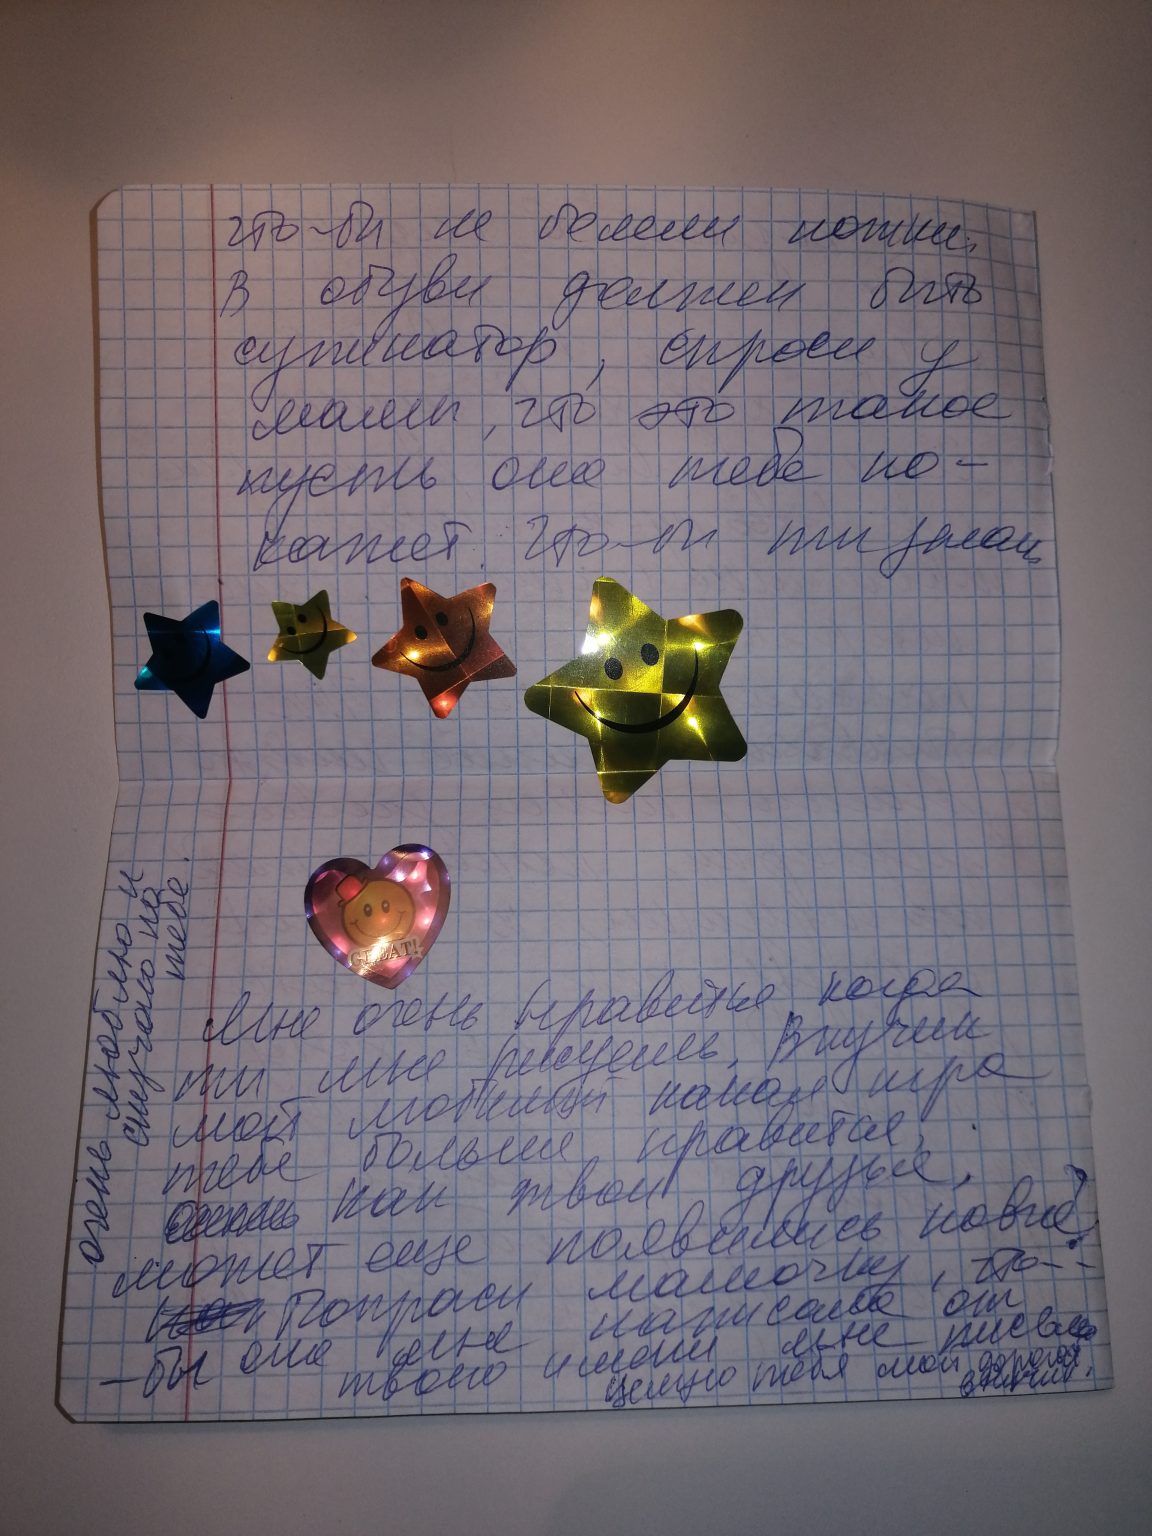 что-бы не болели ножки.
В обуви должен быть
супинатор, спроси у
мамы, что это такое
пусть она тебе по-
кажет. что-бы ты знал
GREAT!
Мне очень нравится когда
ты мне рисуешь. Внучик
мой любимый какая игра
тебе больше нравится,
как твои друзья,
может еще появились новые?
Попроси мамочку, что-
-бы она мне написала от
твоего имени мне письмо
Целую тебя мой дорогой
внучик.
очень люблю и
скучаю по
тебе.